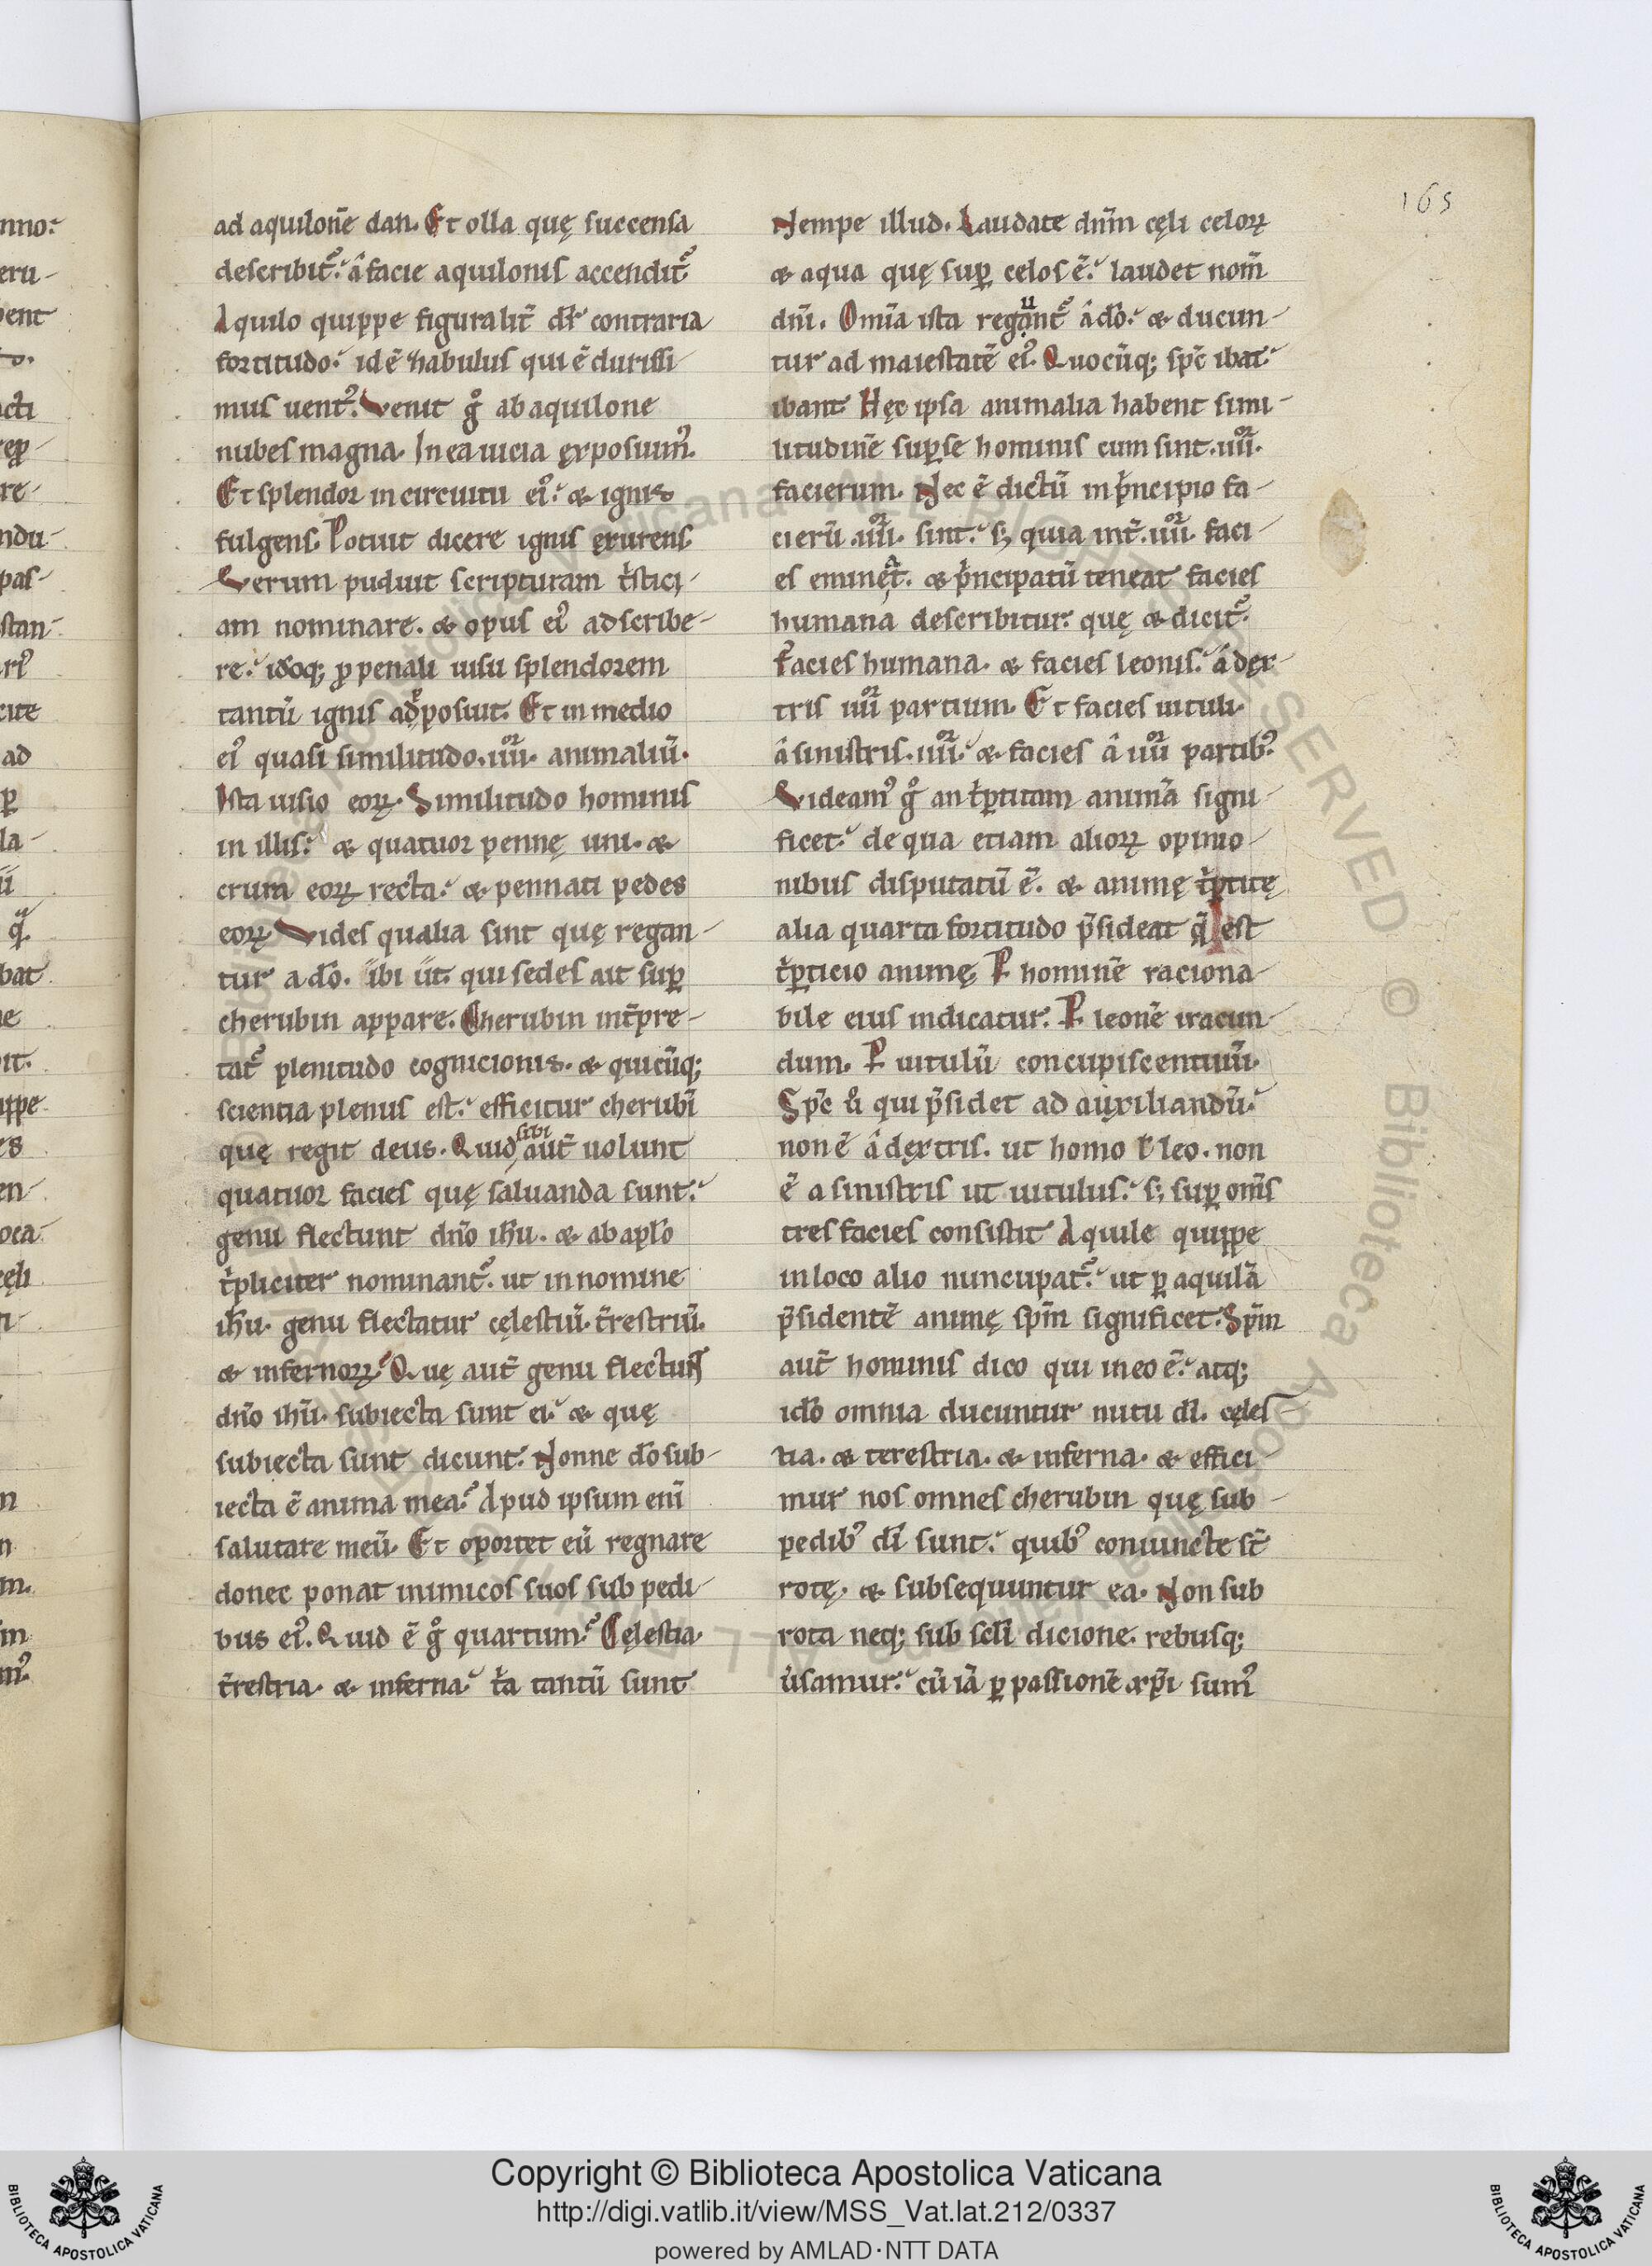 165
ad aquilonē dan. Et olla quę succensa
describit᷑. â facie aquilonis accendit᷑
Aquilo quippe figuralit̄ dr̄ contraria
fortitudo. id ē zhabulus qui ē durissi-
mus uentꝰ. Venit gͦ ab aquilone
nubes magna. In ea uicia exposuimꝰ.
Et splendor in circuitu eiꝰ. & ignis
fulgens. Potuit dicere ignis exurens.
Verum puduit scripturam tͥstici-
am nominare. & opus eiꝰ adscribe-
re. idoq; ꝓ penali uisu splendorem
tantū ignis apposuit. Et in medio
eiꝰ quasi similitudo .iiiior. animaliū.
Ista uisio eorꝝ. Similitudo hominis
in illis. & quatuor pennę uni. &
crura eorꝝ recta. & pennati pedes
eorꝝ Vides qualia sint quę regan-
tur a dō. ibi ut̄. qui sedes ait suꝑ
cherubin appare. Cherubin int̄pre-
tat᷑ plenitudo cognicionis. & quicūq;
scientia plenus est. efficitur cherubī
quę regit deus. Quid sibi aut̄ uolunt
quatuor facies quę saluanda sunt.
genu flectunt dn̄o ih̄u. & ab apl̄o
tͥpliciter nominant᷑. ut in nomine
ih̄u. genu flectatur cęlestiū. t̄restriū.
& infernorꝝ. Quę aut̄ genu flectunt
dn̄o ih̄u. subiecta sunt ei. & quę
subiecta sunt dicunt. Nonne dō sub-
iecta ē anima mea. Apud ipsum enī
salutare meū. Et oportet eū regnare
donec ponat inimicos suos sub pedi-
bus eiꝰ. Quid ē gͦ quartum. Cęlestia.
t̄restria. & inferna. tͥa tantū sunt
Nempe illud. Laudate dn̄m cęli celorꝝ
& aqua quę suꝑ celos ē. laudet nom̄
dn̄i. Om̄ia ista reguant᷑ â dō. & ducun-
tur ad maiestatē eiꝰ. Quocūq; sp̄c ibat.
ibant. Hęc ipsa animalia habent simi-
litudinē suꝑ se hominis cum sint .iiiior.
facierum. Nec ē dictū in pͥncipio fa-
cierū .iiiior. sint. s; quia int̄ .iiiior. faci-
es emineat. & pͥncipatū teneat facies
humana describitur. quę & dicit᷑.
Facies humana. & facies leonis. â dex-
tris iiiior partium. Et facies uituli.
â sinistris .iiiior. & facies â iiiior partibꝰ.
Videamꝰ gͦ an tͥꝑtitam animā signi-
ficet. de qua etiam aliorꝝ opinio-
nibus disputatū ē. & animę tͥꝑtitę
alia quarta fortitudo p̄sideat q̄ est
tͥꝑticio animę. P hominē raciona-
bile eius indicatur. P leonē iracun-
dum. P uitulū concupiscentiuū.
Sp̄c ů qui p̄sidet ad auxiliandū.
non ē â dextris. ut homo ł leo. non
ē a sinistris ut uitulus. s; suꝑ om̄s
tres facies consistit Aquile quippe
in loco alio nuncupat᷑. ut ꝑ aquilā
p̄sidentē animę sp̄m significet. Sp̄m
aut̄ hominis dico qui in eo ē. atq;
idō omnia ducuntur nutu dī. cęles-
tia. & terestria. & inferna. & effici-
mur nos omnes cherubin quę sub
pedibꝰ dī sunt. quibꝰ coniuncte st̄
rotę. & subsequuntur ea. Non sub
rota neq; sub scl̄i dicione. rebusq;
uͥsamur. cū iā ꝑ passionē xp̄i sumꝰ
Copyright © Biblioteca Apostolica Vaticana
http://digi.vatlib.it/view/MSS_Vat.lat.212/0337
powered by AMLAD·NTT DATA
BIBLIOTECA APOSTOLICA VATICANA
BIBLIOTECA APOSTOLICA VATICANA